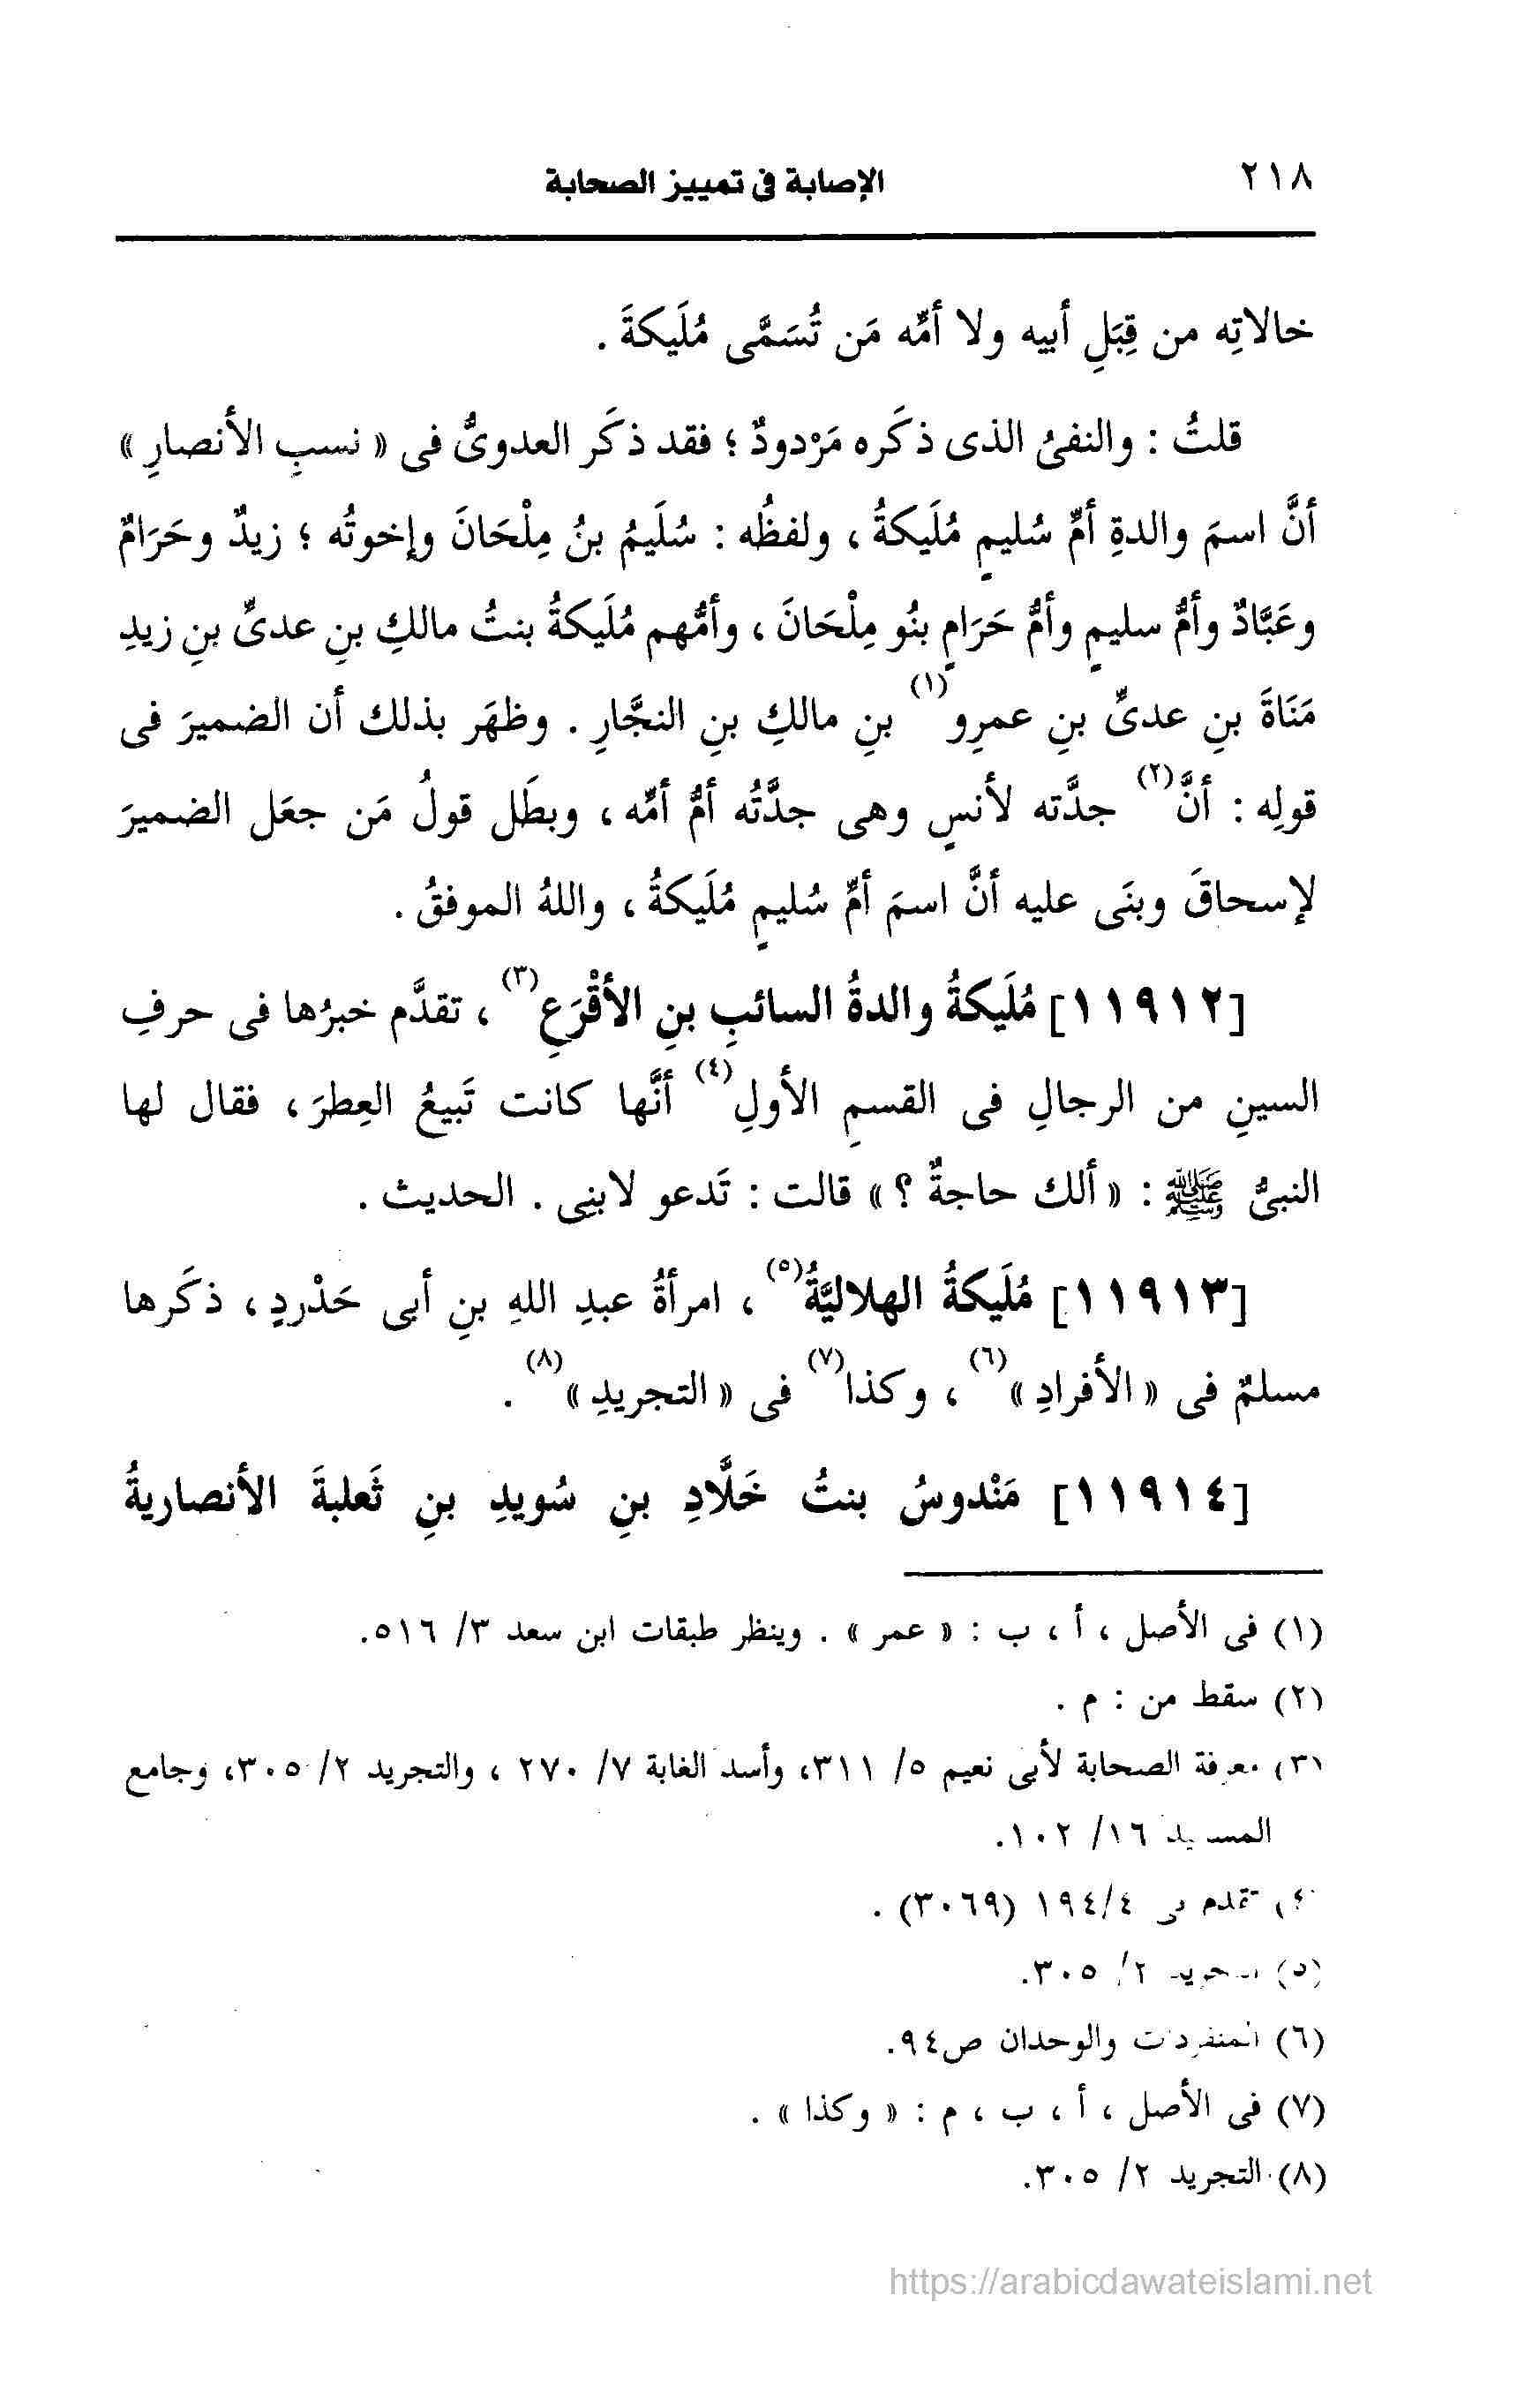 ٢١٨
الإصابة فى تمييز الصحابة
خالاتِه من قِبَلِ أبيه ولا أمِّه مَن تُسَمَّى مُلَيكةَ .
قلتُ : والنفىُ الذى ذكَره مَرْدودٌ ؛ فقد ذكَر العدوىُّ فى « نسبِ الأنصارِ »
أنَّ اسمَ والدةِ أمِّ سُليمٍ مُلَيكةُ ، ولفظُه : سُلَيمُ بنُ مِلْحَانَ وإخوتُه ؛ زيدٌ وحَرَامٌ
وعَبَّادٌ وأمُّ سليمٍ وأمُّ حَرَامٍ بنُو مِلْحَانَ ، وأمُّهم مُلَيكةُ بنتُ مالكِ بنِ عدىِّ بنِ زيدِ
مَنَاةَ بنِ عدىِّ بنِ عمرِو(١) بنِ مالكِ بنِ النجَّارِ . وظهَر بذلك أن الضميرَ فى
قولِه : أنَّ(٢) جدَّته لأنسٍ وهى جدَّتُه أمُّ أمِّه ، وبطَل قولُ مَن جعَل الضميرَ
لإسحاقَ وبنَى عليه أنَّ اسمَ أمِّ سُليمٍ مُلَيكةُ ، واللهُ الموفقُ .
[١١٩١٢] مُلَيكةُ والدةُ السائبِ بنِ الأقْرَعِ(٣) ، تقدَّم خبرُها فى حرفِ
السينِ من الرجالِ فى القسمِ الأولِ(٤) أنَّها كانت تَبيعُ العِطرَ ، فقال لها
النبىُّ ﷺ : « ألك حاجةٌ ؟ » قالت : تَدعو لابنِى . الحديث .
[١١٩١٣] مُلَيكةُ الهلاليَّةُ(٥) ، امرأةُ عبدِ اللهِ بنِ أبى حَدْردٍ ، ذكَرها
مسلمٌ فى « الأفرادِ »(٦) ، وكذا(٧) فى « التجريدِ »(٨) .
[١١٩١٤] مَنْدوسُ بنتُ خَلَّادِ بنِ سُويدِ بنِ ثَعلبةَ الأنصاريةُ
(١) فى الأصل ، أ ، ب : « عمر » . وينظر طبقات ابن سعد ٣/ ٥١٦.
(٢) سقط من : م .
(٣) معرفة الصحابة لأبى نعيم ٥/ ٣١١، وأسد الغابة ٧/ ٢٧٠ ، والتجريد ٢/ ٣٠٥، وجامع
المسانيد ١٦/ ١٠٢.
(٤) تقدم فى ٤/ ١٩٤ (٣٠٦٩) .
(٥) التجريد ٢/ ٣٠٥.
(٦) المنفردات والوحدان ص٩٤.
(٧) فى الأصل ، أ ، ب ، م : « وكذا » .
(٨) التجريد ٢/ ٣٠٥.
https://arabicdawateislami.net